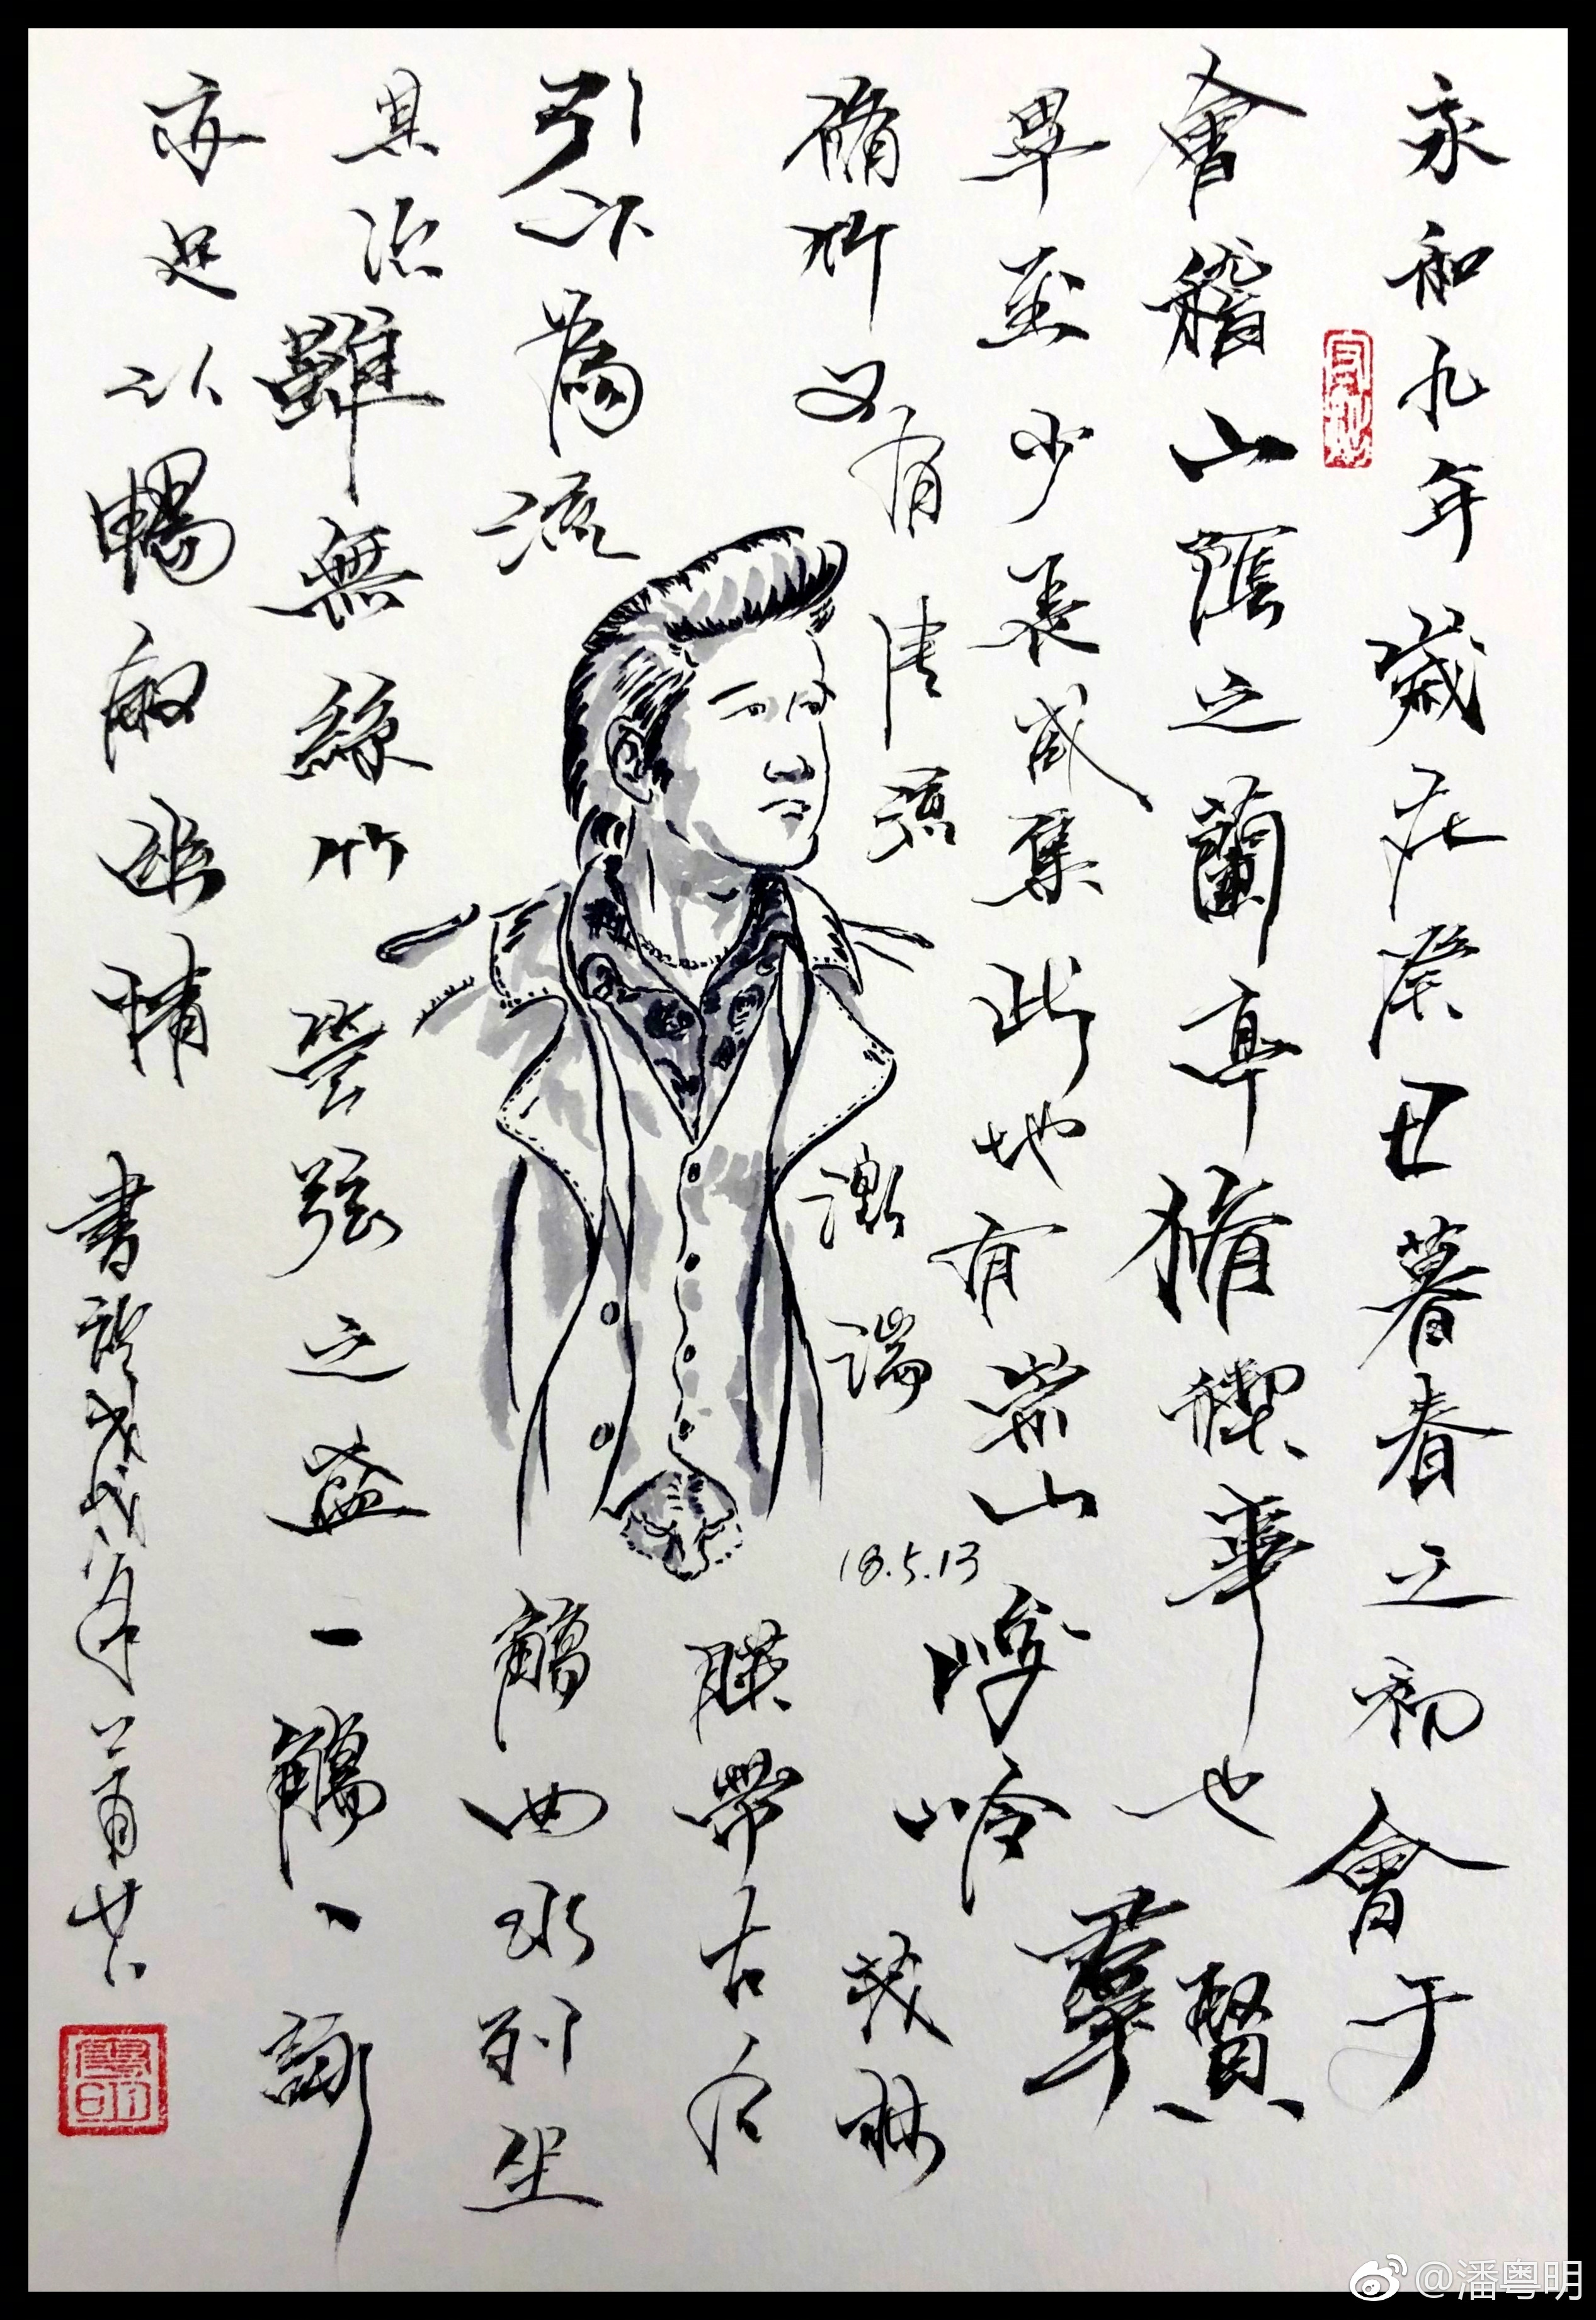 永和九年歲在癸丑暮春之初會于
會稽山陰之蘭亭脩禊事也羣賢
畢至少長咸集此地有崇山峻岭茂林
脩竹又有清流激湍
暎帶左右
引以為流觴曲水列坐
其次雖無絲竹管弦之盛一觴一詠
亦足以暢敘幽情 書於戊戌年
18.5.13
粵明
@潘粤明